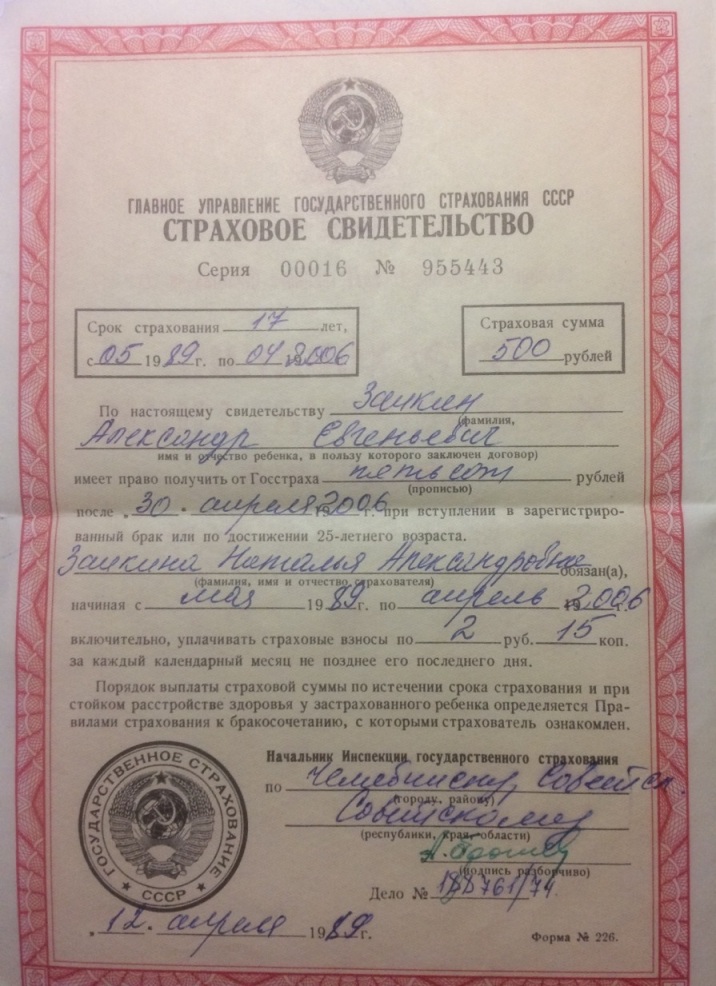 ГЛАВНОЕ УПРАВЛЕНИЕ ГОСУДАРСТВЕННОГО СТРАХОВАНИЯ СССР
СТРАХОВОЕ СВИДЕТЕЛЬСТВО
Серия 00016 № 955443
Срок страхования 17 лет,
с 05 1989г. по 04 2006
Страховая сумма
500 рублей
По настоящему свидетельству Заикин
(фамилия,
Александр Евгеньевич
имя и отчество ребенка, в пользу которого заключен договор)
имеет право получить от Госстраха пятьсот рублей
(прописью)
после „30. апреля 2006 г. при вступлении в зарегистриро-
ванный брак или по достижении 25-летнего возраста.
Заикина Наталья Александровна обязан(а),
(фамилия, имя и отчество страхователя)
начиная с мая 1989г. по апрель 2006
включительно, уплачивать страховые взносы по 2 руб. 15 коп.
за каждый календарный месяц не позднее его последнего дня.
Порядок выплаты страховой суммы по истечении срока страхования и при
стойком расстройстве здоровья у застрахованного ребенка определяется Пра-
вилами страхования к бракосочетанию, с которыми страхователь ознакомлен.
Начальник Инспекции государственного страхования
по
(городу, району)
(республики, края, области)
(подпись разборчиво)
Дело №
„12. апреля 1989г.
Форма № 226.
ГОСУДАРСТВЕННОЕ СТРАХОВАНИЕ
СССР